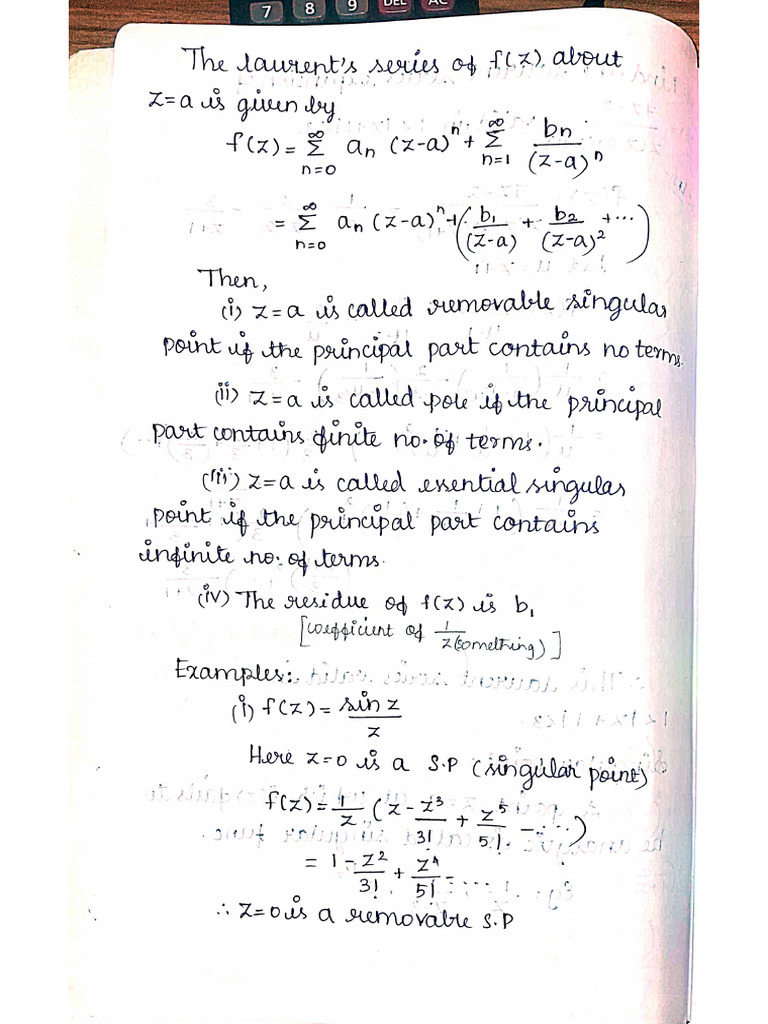 7 8 9 DEL AC
The Laurent's series of f(z) about
z=a is given by
f(z) = ∞Σn=0 an (z-a)^n + ∞Σn=1 bn/(z-a)^n
= ∞Σn=0 an (z-a)^n + (b1/(z-a) + b2/(z-a)^2 + ...)
Then,
(i) z=a is called removable singular
point if the principal part contains no terms.
(ii) z=a is called pole if the principal
part contains finite no. of terms.
(iii) z=a is called essential singular
point if the principal part contains
infinite no. of terms.
(iv) The residue of f(z) is b1
[coefficient of 1/z(something)]
Examples:
(i) f(z) = sin z/z
Here z=0 is a S.P (singular point)
f(z) = 1/z (z - z^3/3! + z^5/5! - ....)
= 1 - z^2/3! + z^4/5! - ....
∴ z=0 is a removable S.P